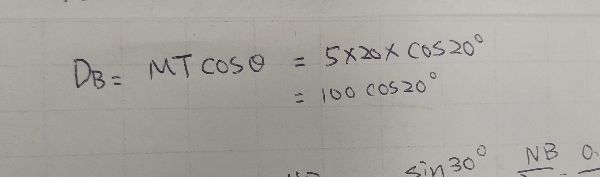 D_B = MT cosθ = 5×20× cos20°
= 100 cos20°
sin30° NB 0.